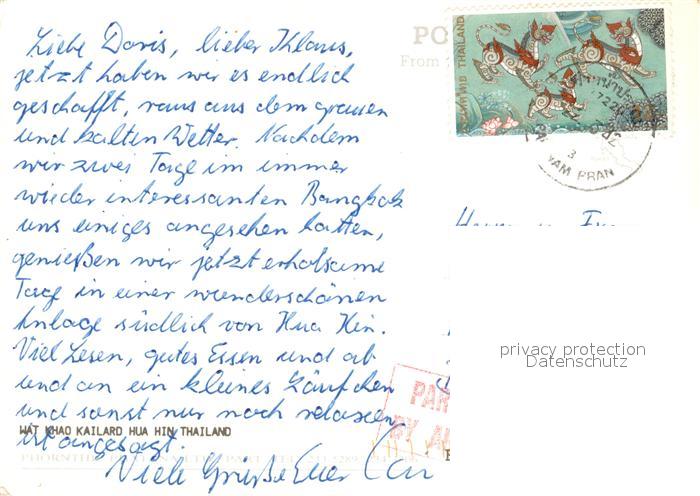 Liebe Doris, lieber Klaus,
jetzt haben wir es endlich
geschafft, raus aus dem grauen
und kalten Wetter. Nachdem
wir zwei Tage im immer
wieder interessanten Bangkok
uns einiges angesehen hatten,
genießen wir jetzt erholsame
Tage in einer wunderschönen
Anlage südlich von Hua Hin.
Viel Lesen, gutes Essen und ab
und an ein kleines Läufchen
und sonst nur noch relaxen
ist angesagt.
Viele Grüße Euer
WAT KHAO KAILARD HUA HIN THAILAND
PO
From
THAILAND
YAM PRAN
PAR
BY A
privacy protection
Datenschutz